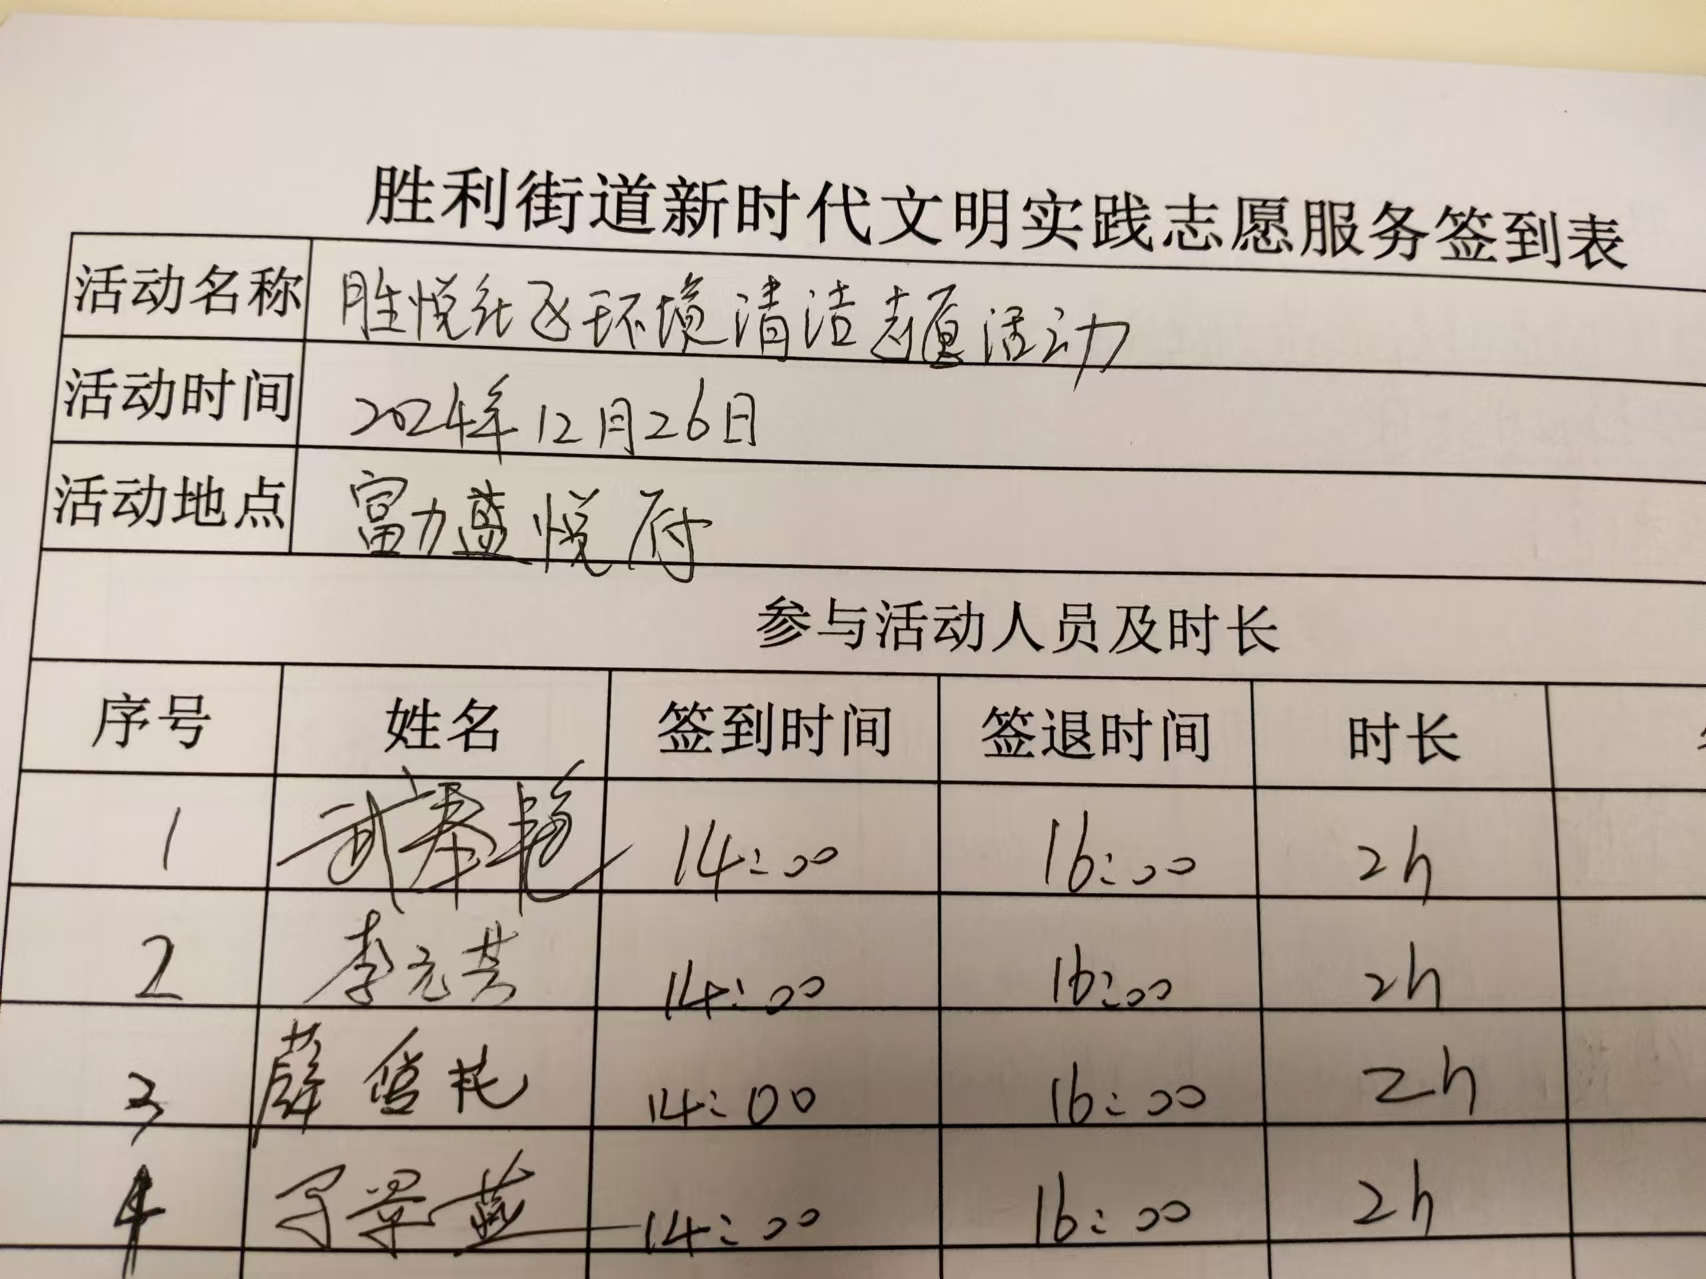 胜利街道新时代文明实践志愿服务签到表
活动名称 胜悦社区环境清洁志愿活动
活动时间 2024年12月26日
活动地点 富力蓝悦府
参与活动人员及时长
序号 姓名 签到时间 签退时间 时长
1 武春艳 14:00 16:00 2h
2 李元芳 14:00 16:00 2h
3 薛 14:00 16:00 2h
4 14:00 16:00 2h